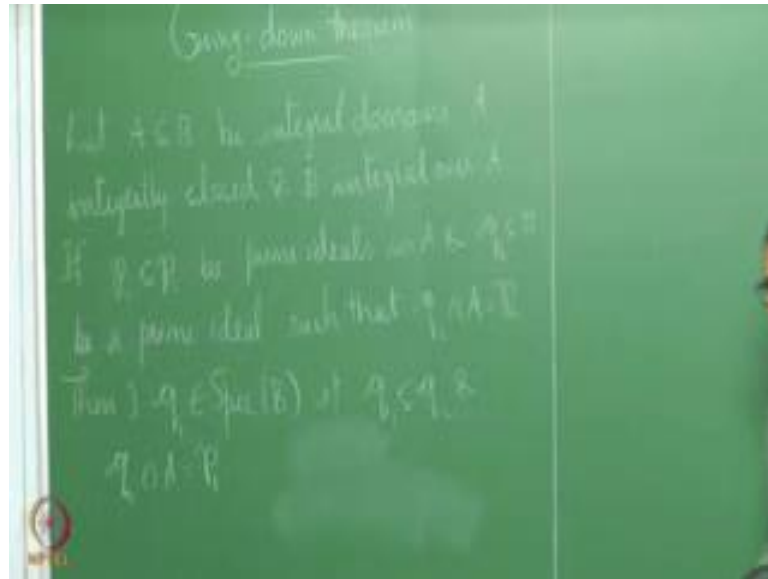 Going-down theorem
Let A ⊆ B be integral domains A
integrally closed & B integral over A
If P₁ ⊂ P₂ be prime ideals in A & q₂ ⊂ B
be a prime ideal such that q₂ ∩ A = P₂
Then ∃ q₁ ∈ Spec(B) st q₁ ⊂ q₂ &
q₁ ∩ A = P₁
NPTEL